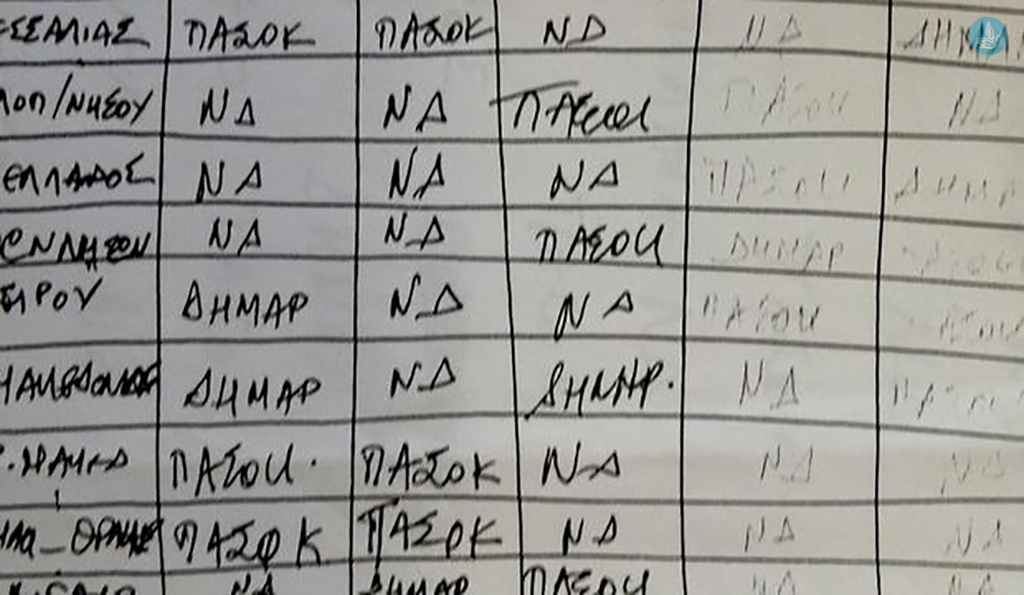 ΣΣΑΛΙΑΣ ΠΑΣΟΚ ΠΑΣΟΚ ΝΔ ΝΔ ΔΗΜΑΡ
ΛΟΠ/ΝΗΣΟΥ ΝΔ ΝΔ ΠΑΣΟΚ ΠΑΣΟΚ ΝΔ
ΕΛΛΑΔΟΣ ΝΔ ΝΔ ΝΔ ΠΑΣΟΚ ΔΗΜΑΡ
ΝΔ ΝΔ ΠΑΣΟΚ ΔΗΜΑΡ ΠΑΣΟΚ
ΕΙΡΟΥ ΔΗΜΑΡ ΝΔ ΝΔ ΠΑΣΟΚ ΠΑΣΟΚ
ΔΗΜΑΡ ΝΔ ΔΗΜΑΡ. ΝΔ ΠΑΣΟΚ
ΠΑΣΟΚ. ΠΑΣΟΚ ΝΔ ΝΔ ΝΔ
ΠΑΣΟΚ ΠΑΣΟΚ ΝΔ ΝΔ ΝΔ
ΝΔ ΔΗΜΑΡ ΠΑΣΟΚ ΝΔ ΝΔ